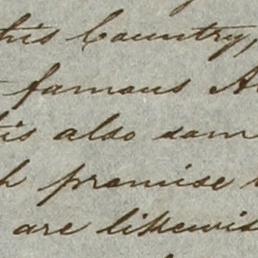 this Country,
famous A
is also dam
promise
are likewis